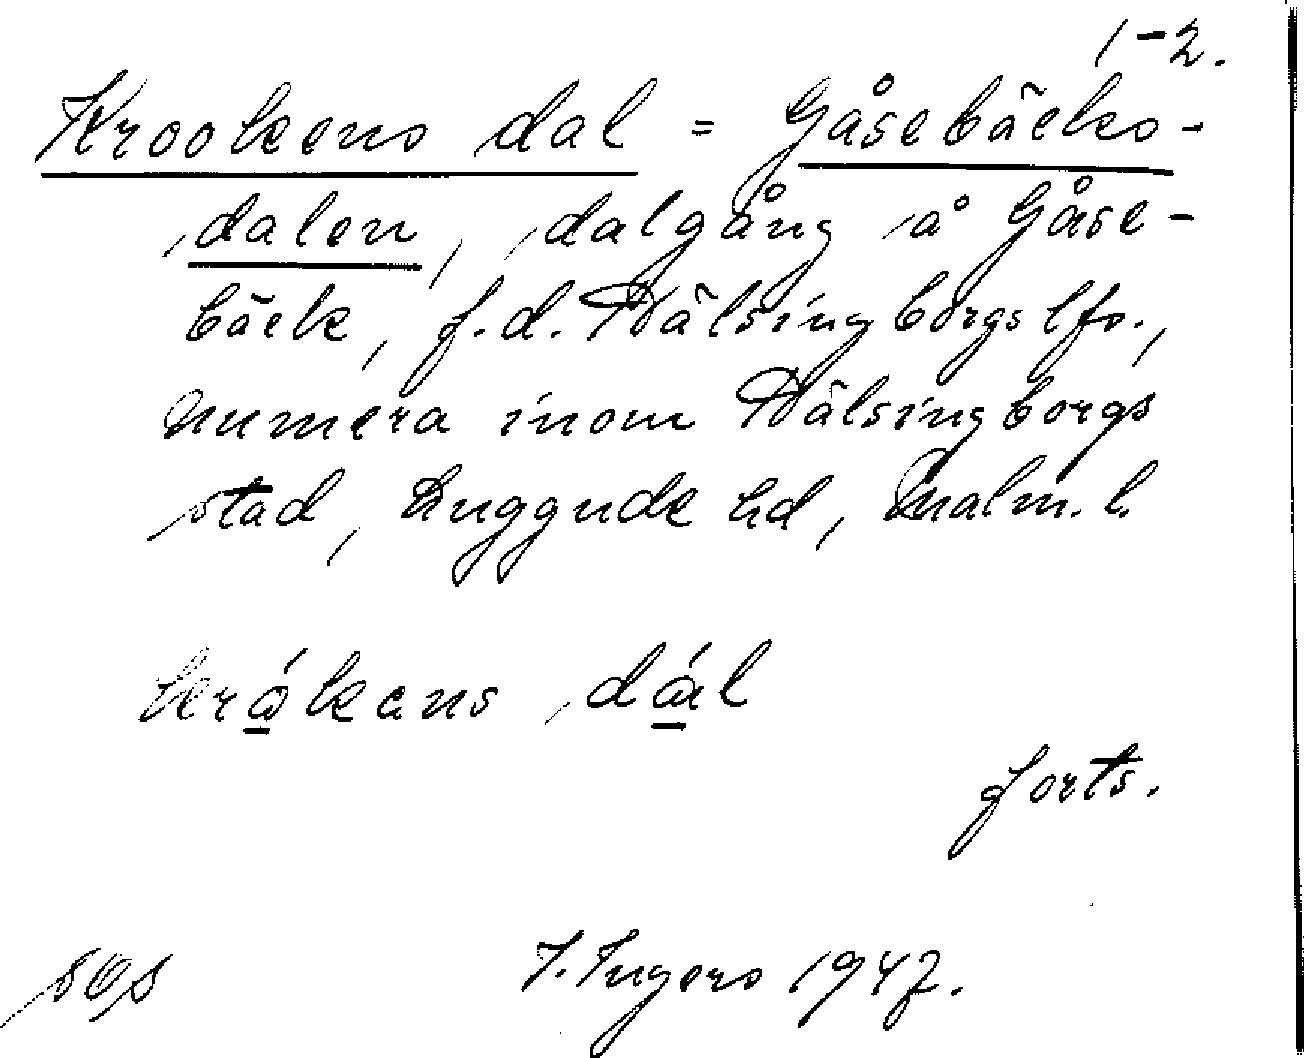 1-2.
Krookens dal = Gåsebäcks-
dalen, dalgång å Gåse-
bäck, f.d. Hälsingborgs lfs.,
numera inom Hälsingborgs
stad, Luggude hd, Malm. l.
dál
forts.
I. Ingers 1947.